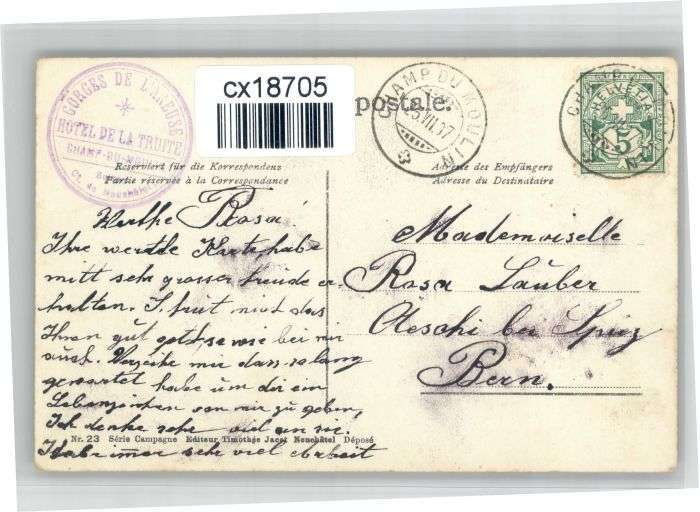 GORGES DE L'AREUSE
HÔTEL DE LA TRUITE
CHAMP-DU-MOULIN
Ct. de Neuchâtel
cx18705
postale.
CHAMP DU MOULIN
25.VII.07
HELVETIA
5
Reserviert für die Korrespondenz
Partie réservée à la Correspondance
Adresse des Empfängers
Adresse du Destinataire
Werthe Rosa
Ihre werthe Karte habe
mitt sehr grosser freude er-
halten. Es freut mich das
Ihnen gut geth, so wie bei mir
auch. Verzeihe mir dass so lang
gewartet habe um dir ein
Lebenzeichen von mir zu geben,
Ich denke sehr viel an sie.
Habe immer sehr viel arbeit
Mademoiselle
Rosa Lauber
Aeschi bei Spiez
Bern.
Nr. 23 Série Campagne Editeur Timothée Jacot Neuchâtel Déposé